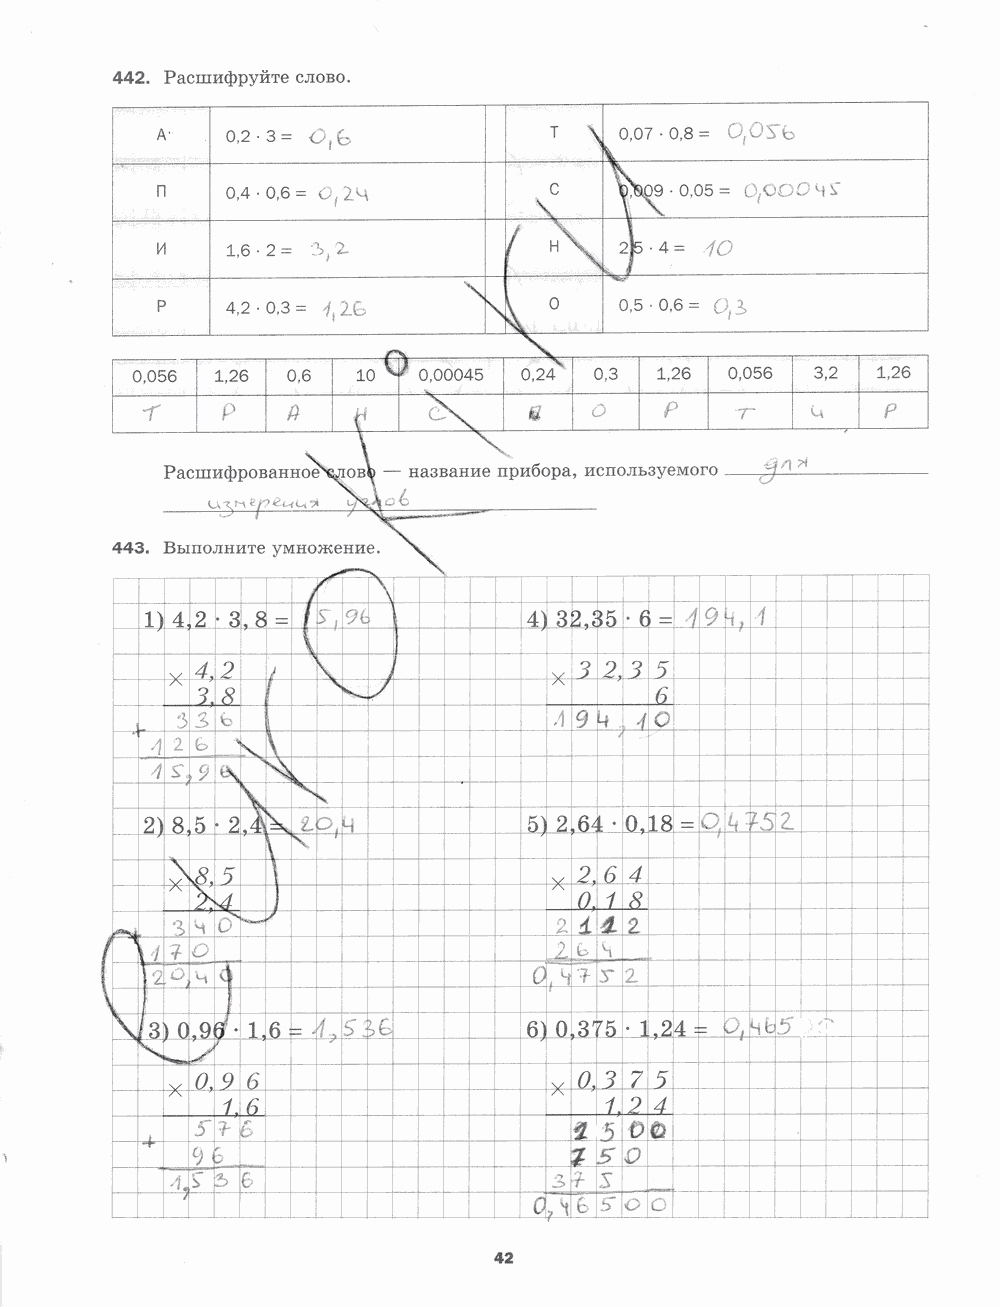 442. Расшифруйте слово.
А 0,2 · 3 = 0,6 Т 0,07 · 0,8 = 0,056
П 0,4 · 0,6 = 0,24 С 0,009 · 0,05 = 0,00045
И 1,6 · 2 = 3,2 Н 2,5 · 4 = 10
Р 4,2 · 0,3 = 1,26 О 0,5 · 0,6 = 0,3
0,056 1,26 0,6 10 0,00045 0,24 0,3 1,26 0,056 3,2 1,26
Т Р А Н С П О Р Т И Р
Расшифрованное слово — название прибора, используемого для
измерения углов
443. Выполните умножение.
1) 4,2 · 3,8 = 15,96 4) 32,35 · 6 = 194,1
× 4,2 × 32,35
3,8 6
336 194,10
+ 126
15,96
2) 8,5 · 2,4 = 20,4 5) 2,64 · 0,18 = 0,4752
× 8,5 × 2,64
2,4 0,18
340 2112
+ 170 264
20,40 0,4752
3) 0,96 · 1,6 = 1,536 6) 0,375 · 1,24 = 0,465
× 0,96 × 0,375
1,6 1,24
576 1500
+ 96 750
1,536 375
0,46500
42